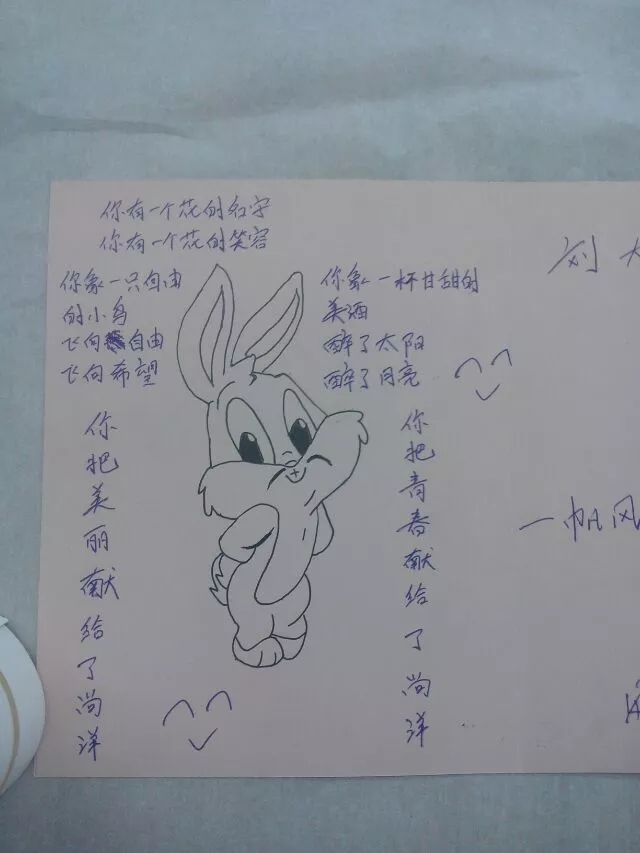 你有一个花的名字
你有一个花的笑容
你象一只自由
的小鸟
飞向自由
飞向希望
你象一杯甘甜的
美酒
醉了太阳
醉了月亮
你把美丽献给了尚洋
你把青春献给了尚洋
刘
一帆风